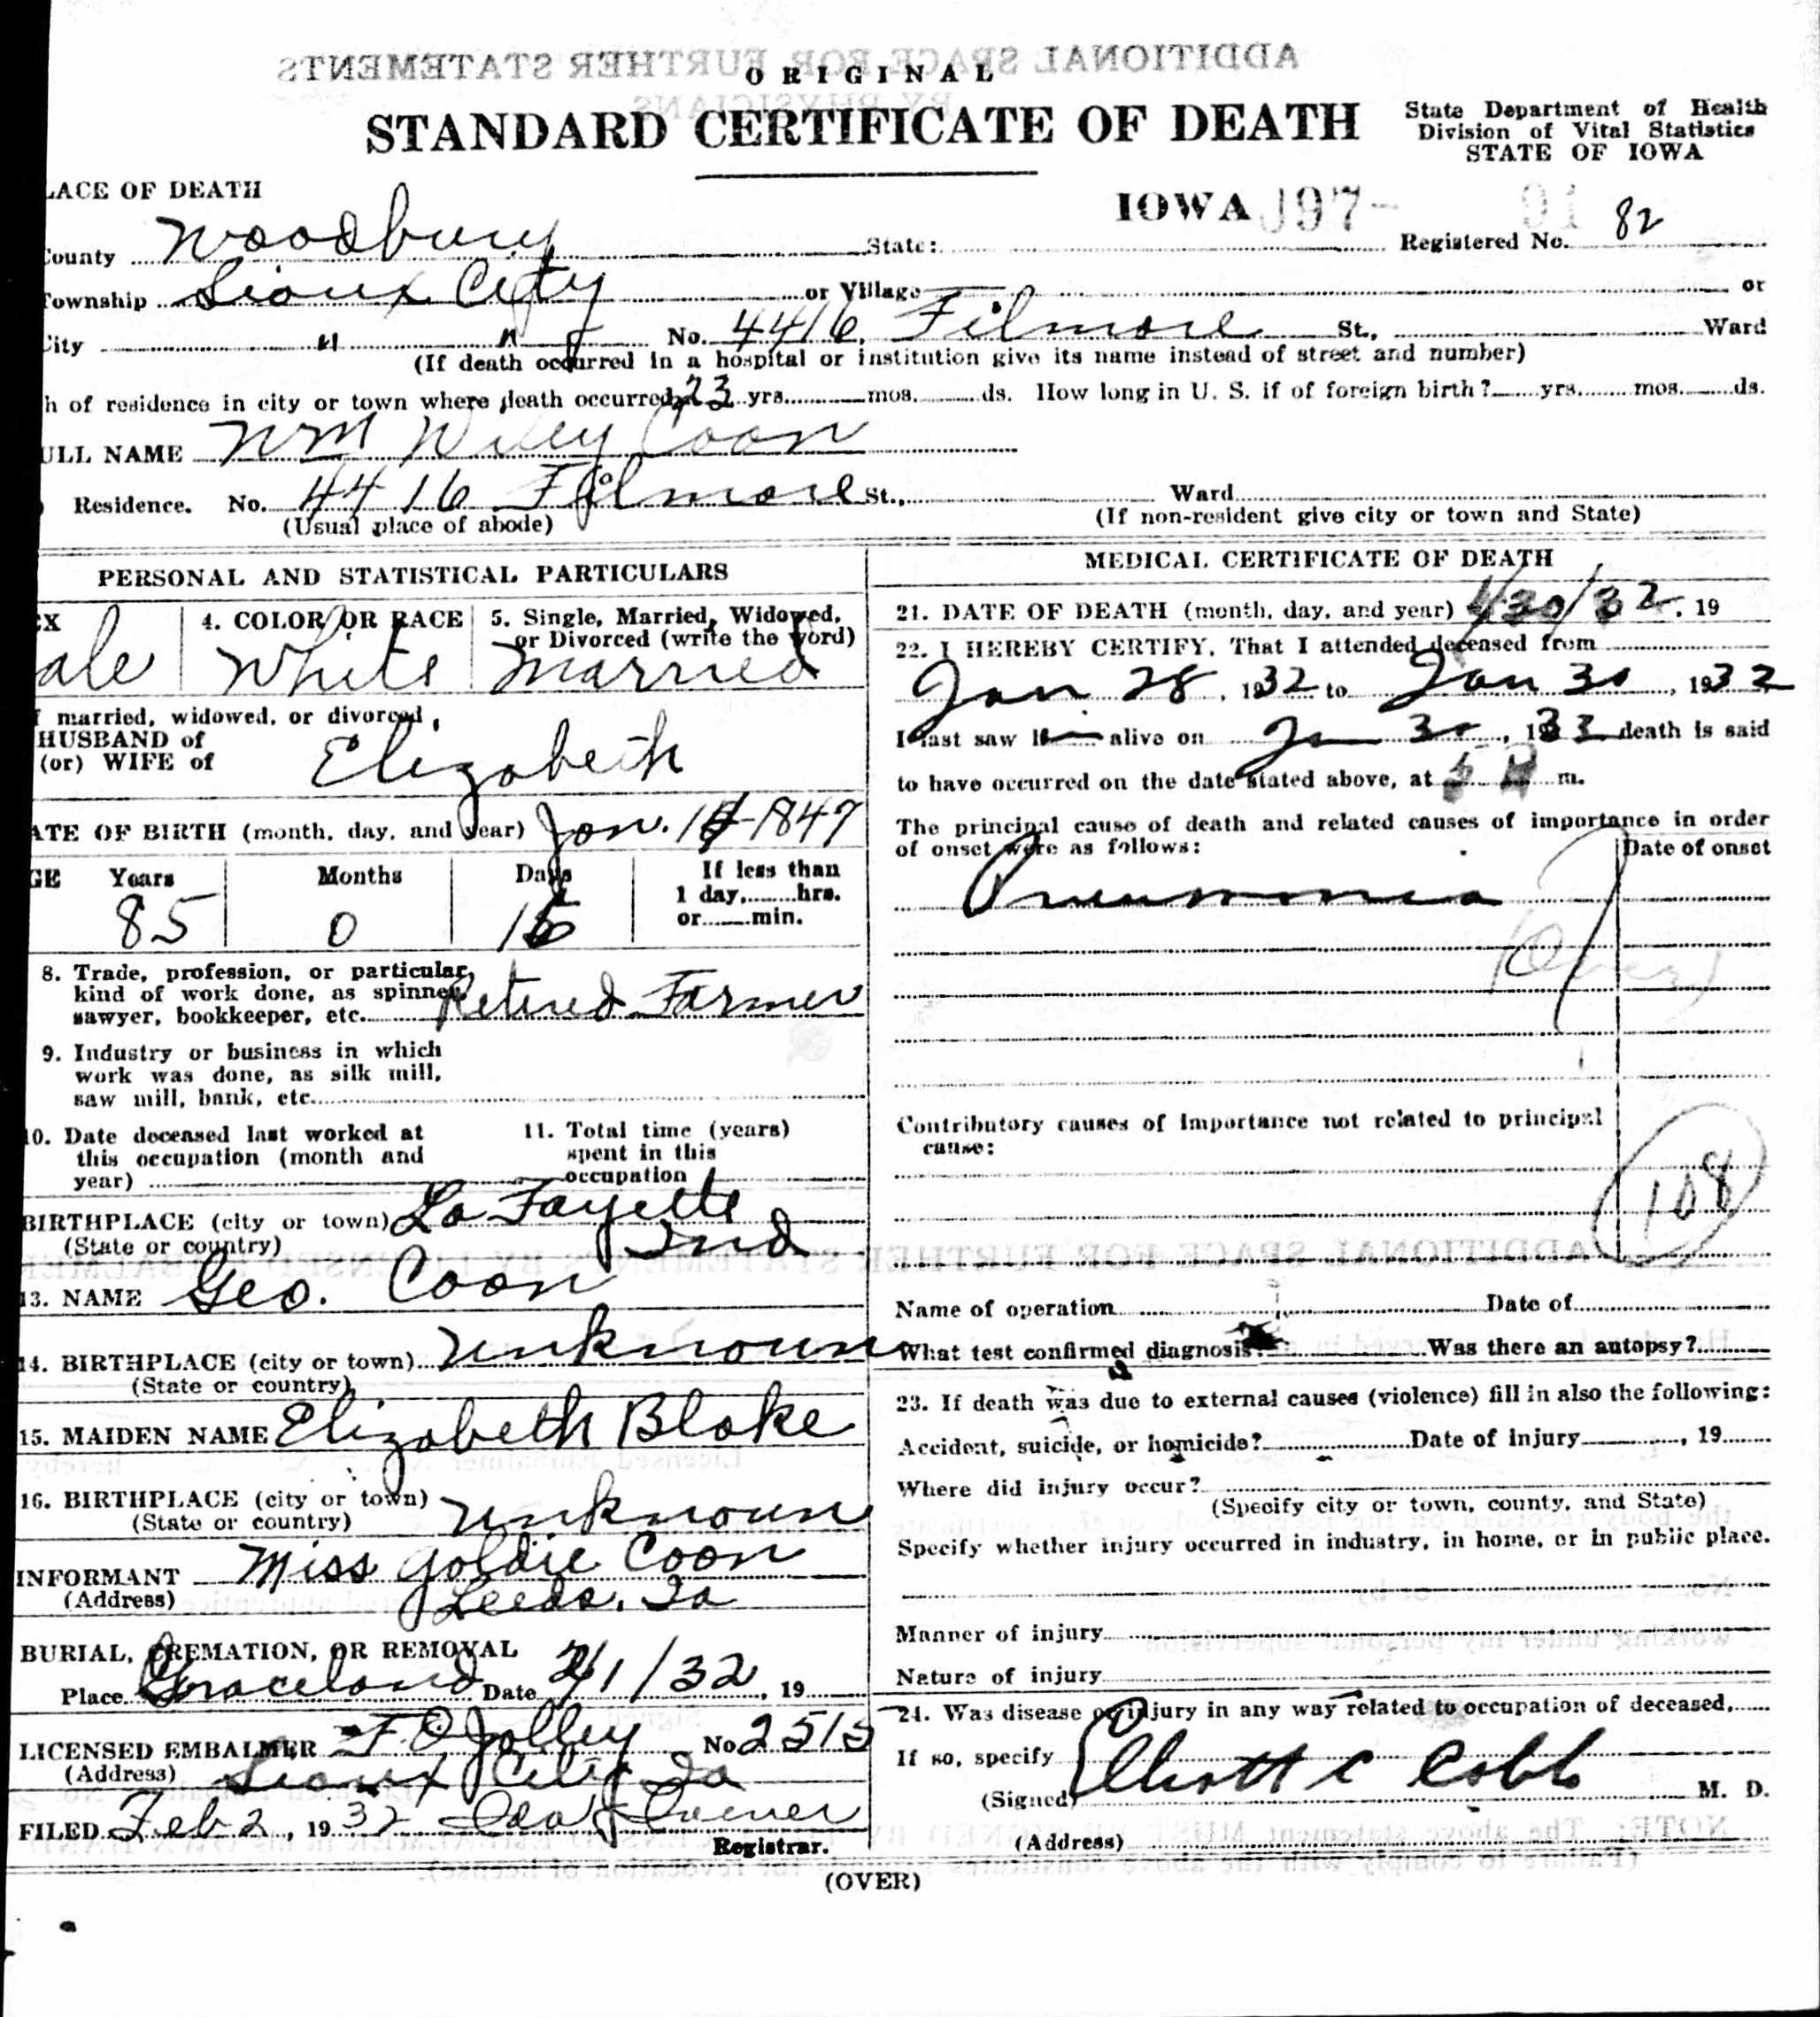 ADDITIONAL SPACE FOR FURTHER STATEMENTS
BY PHYSICIANS
ORIGINAL
STANDARD CERTIFICATE OF DEATH
State Department of Health
Division of Vital Statistics
STATE OF IOWA
LACE OF DEATH
IOWA 97- 91
County Woodbury State: Registered No. 82
Township Sioux City or Village or
City " " No. 4416 Filmore St., Ward
(If death occurred in a hospital or institution give its name instead of street and number)
h of residence in city or town where death occurred 23 yrs. mos. ds. How long in U. S. if of foreign birth? yrs. mos. ds.
ULL NAME Wm Wiley Coon
Residence. No. 4416 Filmore St., Ward
(Usual place of abode) (If non-resident give city or town and State)
PERSONAL AND STATISTICAL PARTICULARS
EX 4. COLOR OR RACE 5. Single, Married, Widowed, or Divorced (write the word)
ale White Married
f married, widowed, or divorced,
HUSBAND of
(or) WIFE of Elizabeth
ATE OF BIRTH (month, day, and year) Jan. 1847
GE Years Months Days If less than
1 day, hrs.
or min.
85 0
8. Trade, profession, or particular
kind of work done, as spinner,
sawyer, bookkeeper, etc. Retired Farmer
9. Industry or business in which
work was done, as silk mill,
saw mill, bank, etc.
10. Date deceased last worked at
this occupation (month and
year)
11. Total time (years)
spent in this
occupation
BIRTHPLACE (city or town) La Fayette
(State or country) Ind
13. NAME Geo. Coon
14. BIRTHPLACE (city or town) unknown
(State or country)
15. MAIDEN NAME Elizabeth Blake
16. BIRTHPLACE (city or town) unknown
(State or country)
INFORMANT Miss Goldie Coon
(Address) Leeds, Ia
BURIAL, CREMATION, OR REMOVAL
Place Graceland Date 2/1/32, 19
LICENSED EMBALMER F. O Jolley No 2515
(Address) Sioux City Ia
FILED Feb 2, 1932 Ida
Registrar.
MEDICAL CERTIFICATE OF DEATH
21. DATE OF DEATH (month, day, and year) 1/30/32, 19
22. I HEREBY CERTIFY, That I attended deceased from
Jan 28, 1932 to Jan 30, 1932
I last saw h alive on Jan 30, 1932 death is said
to have occurred on the date stated above, at m.
The principal cause of death and related causes of importance in order
of onset were as follows: Date of onset
Pneumonia
(Over)
Contributory causes of importance not related to principal
cause:
108
Name of operation Date of
What test confirmed diagnosis? Was there an autopsy?
23. If death was due to external causes (violence) fill in also the following:
Accident, suicide, or homicide? Date of injury, 19
Where did injury occur?
(Specify city or town, county, and State)
Specify whether injury occurred in industry, in home, or in public place.
Manner of injury
Nature of injury
24. Was disease or injury in any way related to occupation of deceased,
If so, specify
(Signed) Elliott C Cobb M. D.
(Address)
(OVER)